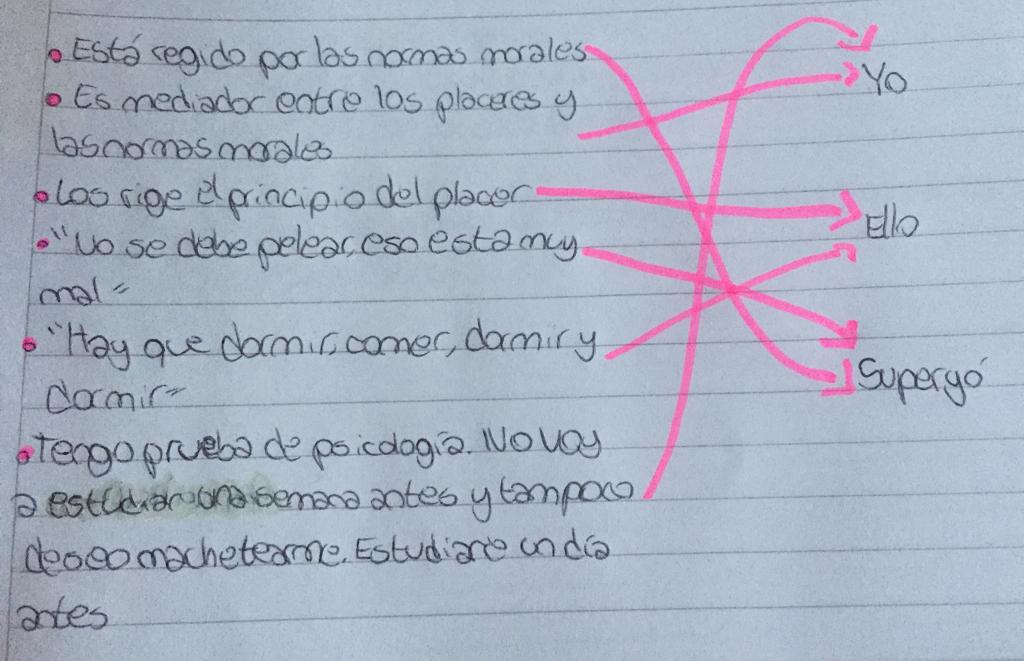 • Está regido por las normas morales
• Es mediador entre los placeres y
las normas morales
Yo
• Los rige el principio del placer
Ello
• "No se debe pelear, eso esta muy
mal"
• "Hay que dormir, comer, dormir y
dormir"
Superyó
• Tengo prueba de psicología. No voy
a estudiar una semana antes y tampoco
deseo machetearme. Estudiaré un día
antes